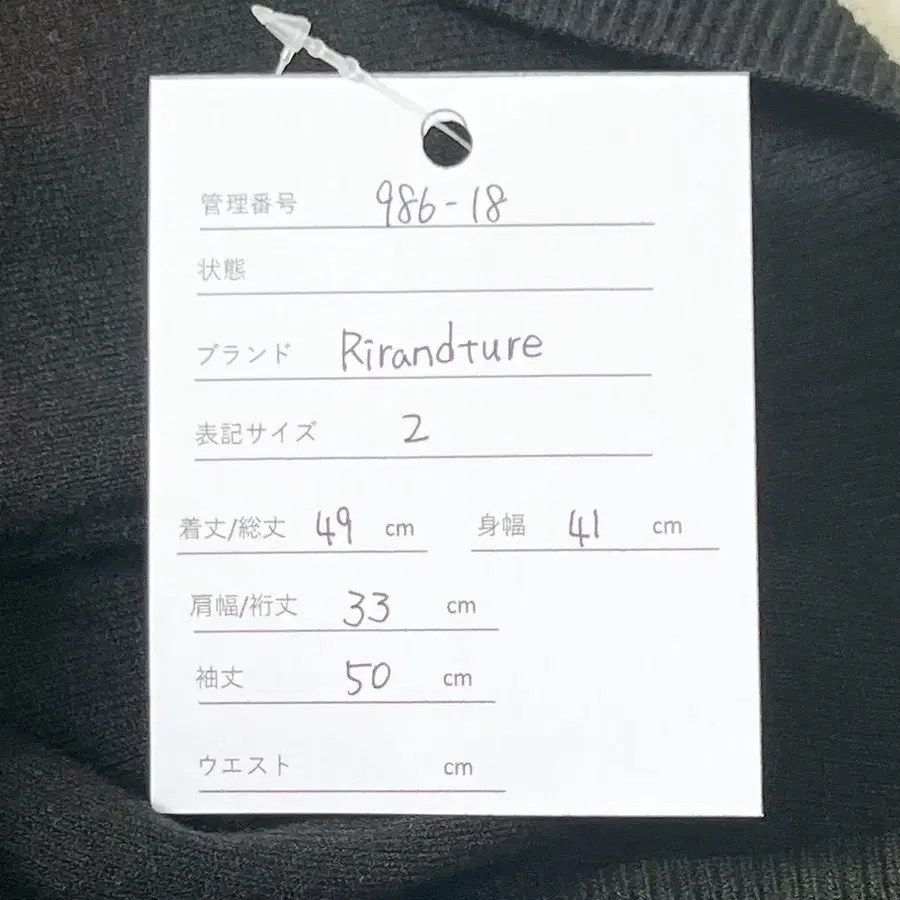 管理番号 986-18
状態
ブランド Rirandture
表記サイズ 2
着丈/総丈 49 cm 身幅 41 cm
肩幅/裄丈 33 cm
袖丈 50 cm
ウエスト cm